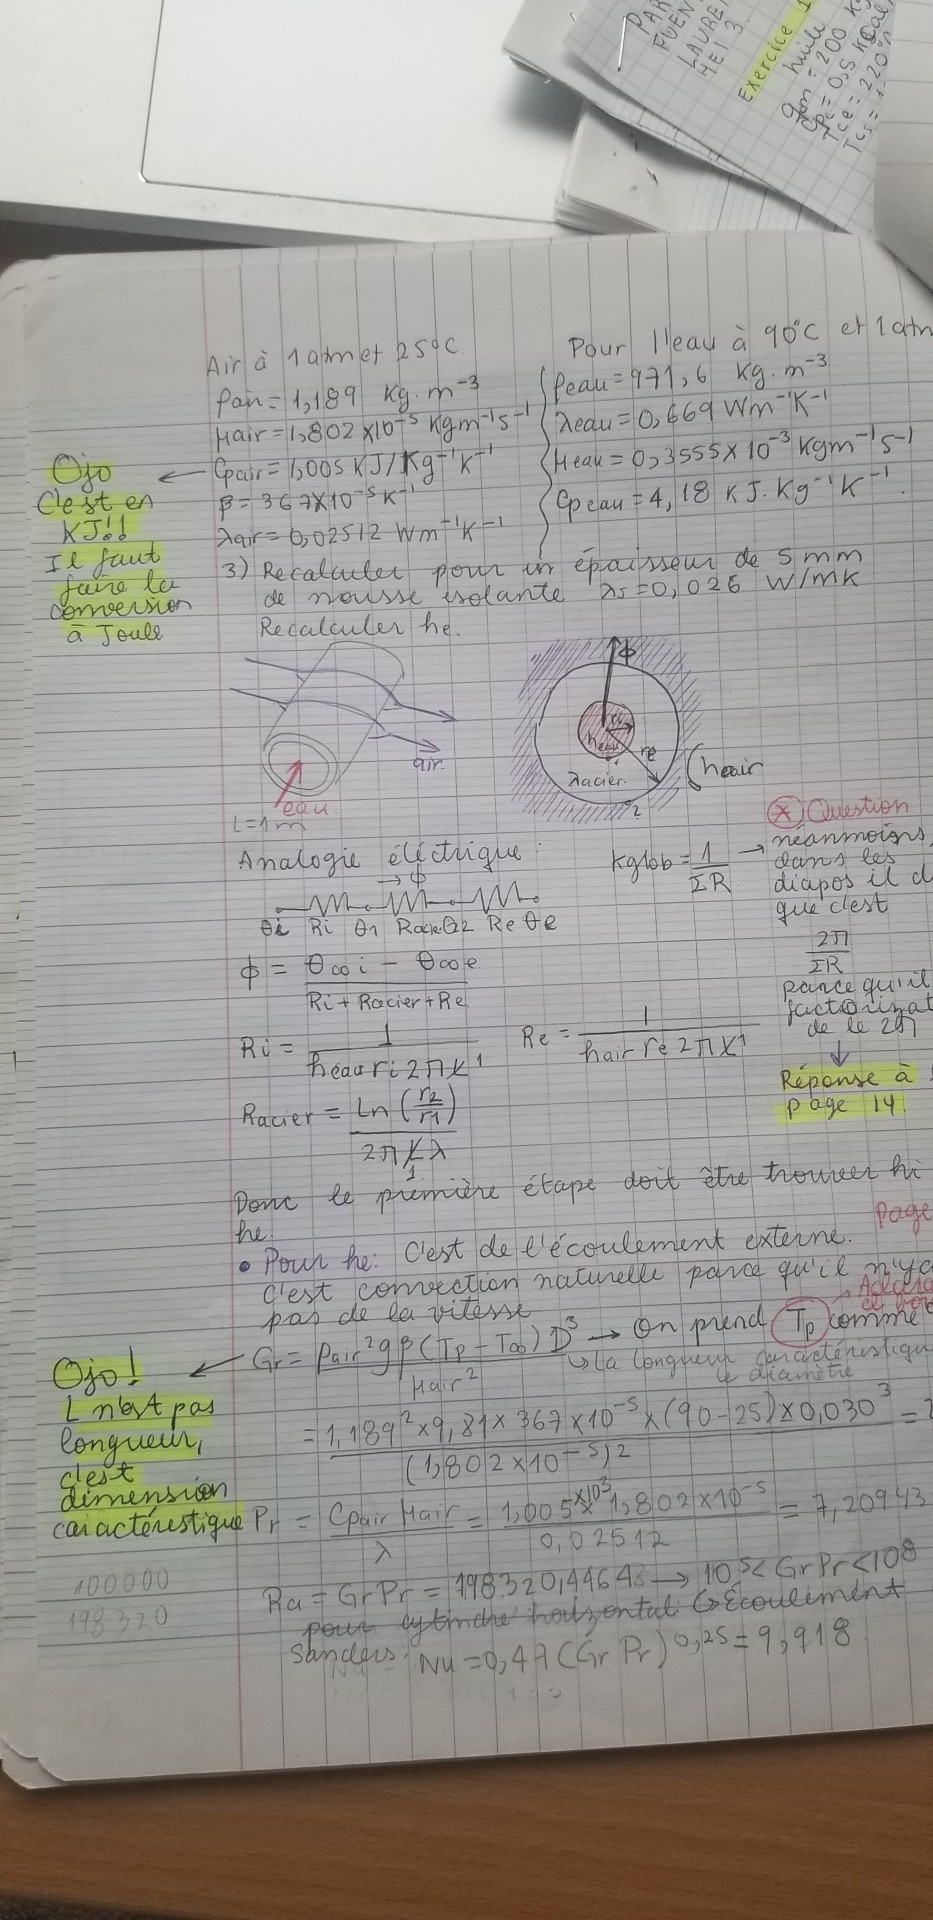 PAR
FUEN
LAURE
HEI 3
Exercice 1
huile
qm = 200 kg
Cpc = 0,5 Kcal
Tce = 220°
Tcs = 1
Air à 1 atm et 25°C.
ρair = 1,189 Kg.m⁻³
μair = 1,802 x10⁻⁵ Kgm⁻¹s⁻¹
Cpair = 1,005 KJ/Kg⁻¹K⁻¹
β = 367x10⁻⁵ K⁻¹
λair = 0,02512 Wm⁻¹K⁻¹
Pour l'eau à 90°C et 1 atm
ρeau = 971,6 Kg.m⁻³
λeau = 0,669 Wm⁻¹K⁻¹
μeau = 0,3555x10⁻³ Kgm⁻¹s⁻¹
Cpeau = 4,18 KJ.Kg⁻¹K⁻¹.
Ojo
C'est en
KJ!!
Il faut
faire la
conversion
à Joule
3) Recalculer pour un épaisseur de 5 mm
de mousse isolante λs = 0,026 W/mK
Recalculer he.
air
eau
L=1m
ϕ
ri
heau
re
λacier.
2
hair
Analogie électrique :
→ ϕ
θi Ri θ1 Racier θ2 Re θe
Kglob = 1/ΣR →
(*) Question
néanmoins,
dans les
diapos il d
que c'est
2π/ΣR
parce qu'il
factorizat
de le 2π
↓
Réponse à
page 14
ϕ = (θ∞i − θ∞e)/(Ri + Racier + Re)
Ri = 1/(heau ri 2π L 1)
Re = 1/(hair re 2π L 1)
Racier = Ln(r2/r1)/(2π L λ)
1
Donc le première étape doit être trouver hi
he.
Page
• Pour he: C'est de l'écoulement externe.
C'est convection naturelle parce qu'il n'y a
pas de la vitesse
Gr = ρair² g β (Tp − T∞) D³/μair² → On prend Tp comme
↳ la longueur caractéristique
le diamètre
Ojo!
L n'est pas
longueur,
c'est
dimension
caractéristique
= 1,189² x 9,81 x 367 x 10⁻⁵ x (90−25) x 0,030³/(1,802 x10⁻⁵)2 =
Pr = Cpair μair/λ = 1,005 x10³ x 1,802 x10⁻⁵/0,02512 = 7,20943
100000
198320
Ra = GrPr = 198320,4464 → 10⁵ < GrPr < 10⁸
pour cylindre horizontal ↳ Écoulement
Sanders: Nu = 0,47 (Gr Pr)^0,25 = 9,918